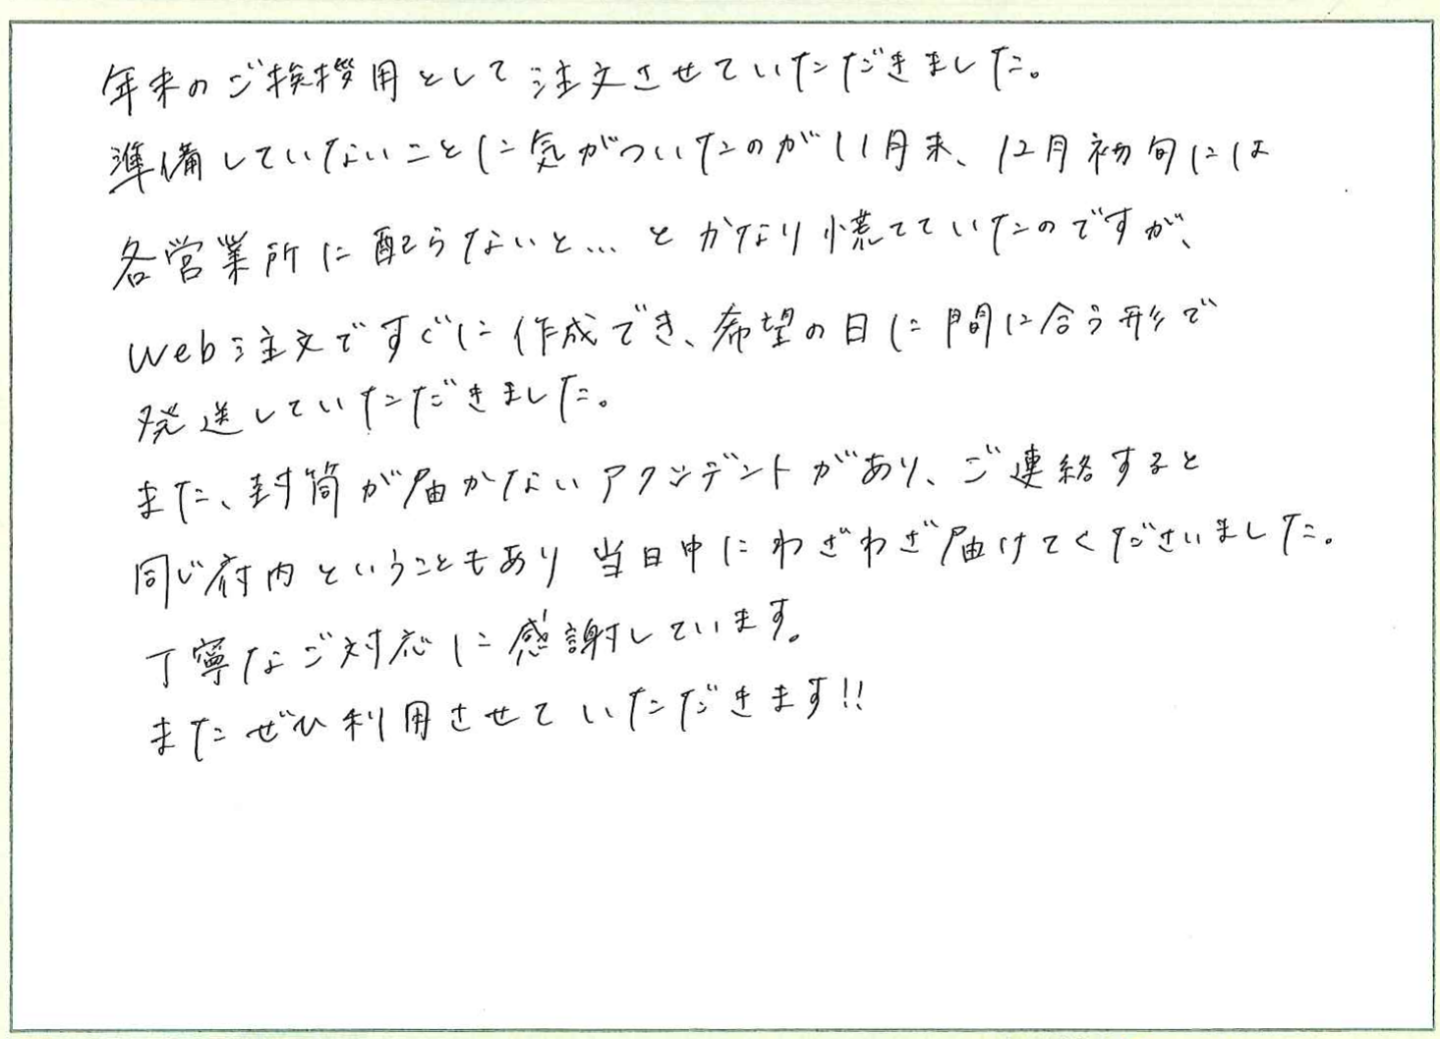 年末のご挨拶用として注文させていただきました。
準備していないことに気がついたのが11月末、12月初旬には
各営業所に配らないと…とかなり慌てていたのですが、
web注文ですぐに作成でき、希望の日に間に合う形で
発送していただきました。
また、封筒が届かないアクシデントがあり、ご連絡すると
同じ府内ということもあり当日中にわざわざ届けてくださいました。
丁寧なご対応に感謝しています。
またぜひ利用させていただきます!!